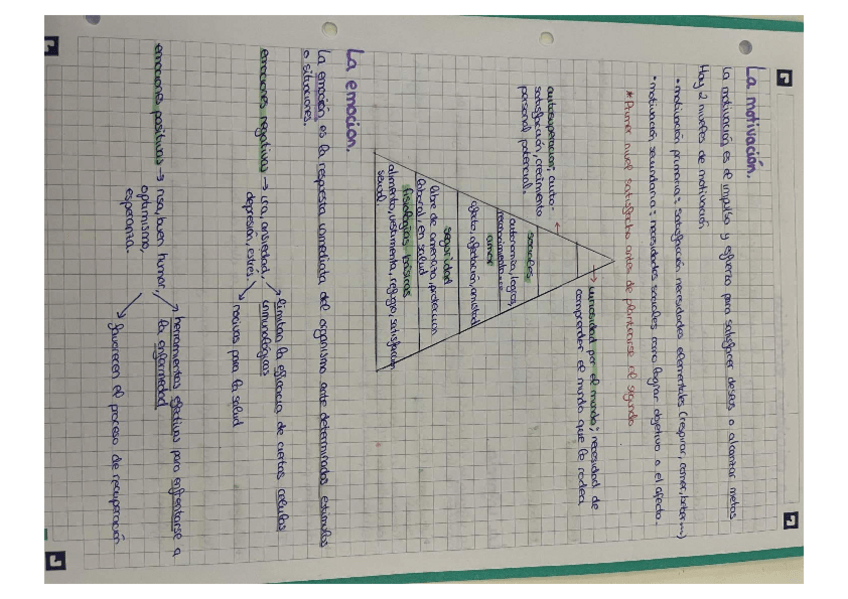 La motivación.
La motivación es el impulso y esfuerzo para satisfacer deseos o alcanzar metas
Hay 2 niveles de motivación
• motivación primaria: satisfacción necesidades elementales (respirar, comer, beber...)
• motivación secundaria: necesidades sociales como lograr objetivo o el afecto.
* Primer nivel satisfecho antes de plantearse el segundo
→ curiosidad por el mundo; necesidad de
comprender el mundo que le rodea
autosuperación, auto-
satisfacción, crecimiento
personal, potencial.
sociales
autonomía, logros,
reconocimiento...
amor
afecto, aceptación, amistad
seguridad
libre de amenazas, protección
laboral, en salud
fisiológicas básicas
alimento, vestimenta, refugio, satisfacción
sexual
La emocion.
La emoción es la respuesta inmediata del organismo ante determinados estímulos
o situaciones.
emociones negativas → ira, ansiedad,
depresión, estrés
→ limitan la eficacia de ciertas celulas
inmunológicas
→ nocivas para la salud
emociones positivas → risa, buen humor,
optimismo,
esperanza.
→ herramientas efectivas para enfrentarse a
la enfermedad
→ favorecen el proceso de recuperación